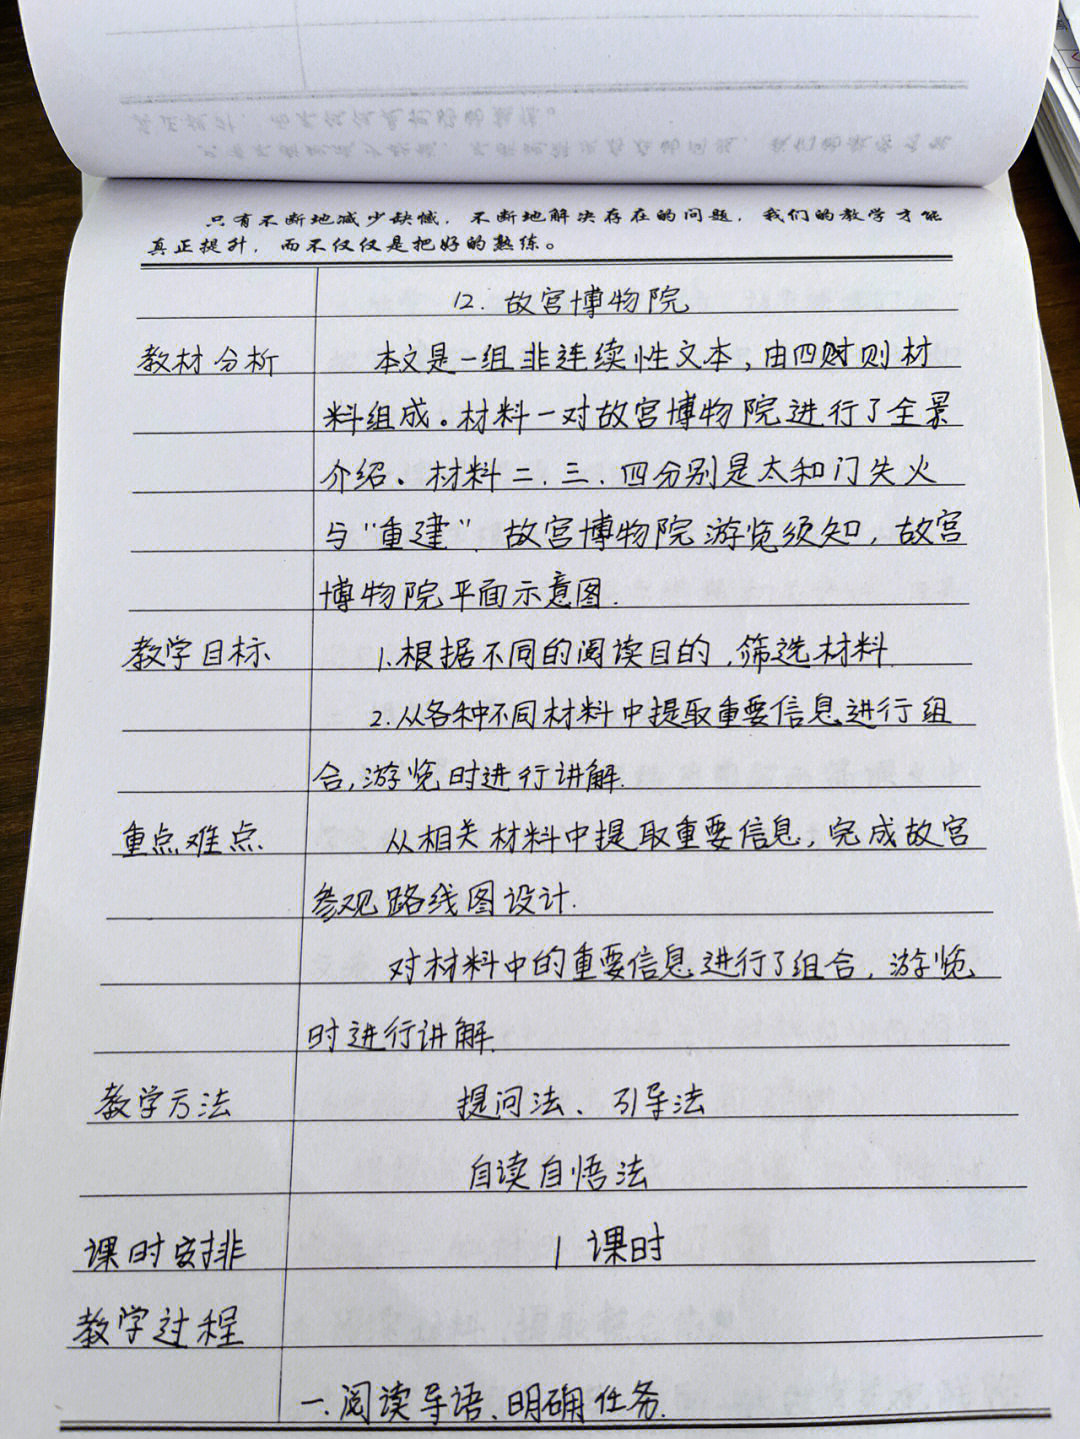 只有不断地减少缺憾，不断地解决存在的问题，我们的教学才能
真正提升，而不仅仅是把好的熟练。
12.故宫博物院
教材分析 本文是一组非连续性文本,由四财则材
料组成。材料一对故宫博物院进行了全景
介绍。材料二.三、四分别是太和门失火
与“重建”.故宫博物院游览须知,故宫
博物院平面示意图.
教学目标 1.根据不同的阅读目的,筛选材料.
2.从各种不同材料中提取重要信息进行组
合,游览时进行讲解.
重点难点 从相关材料中提取重要信息,完成故宫
参观路线图设计.
对材料中的重要信息进行了组合,游览
时进行讲解.
教学方法 提问法、引导法
自读自悟法
课时安排 1课时
教学过程
一.阅读导语、明确任务.